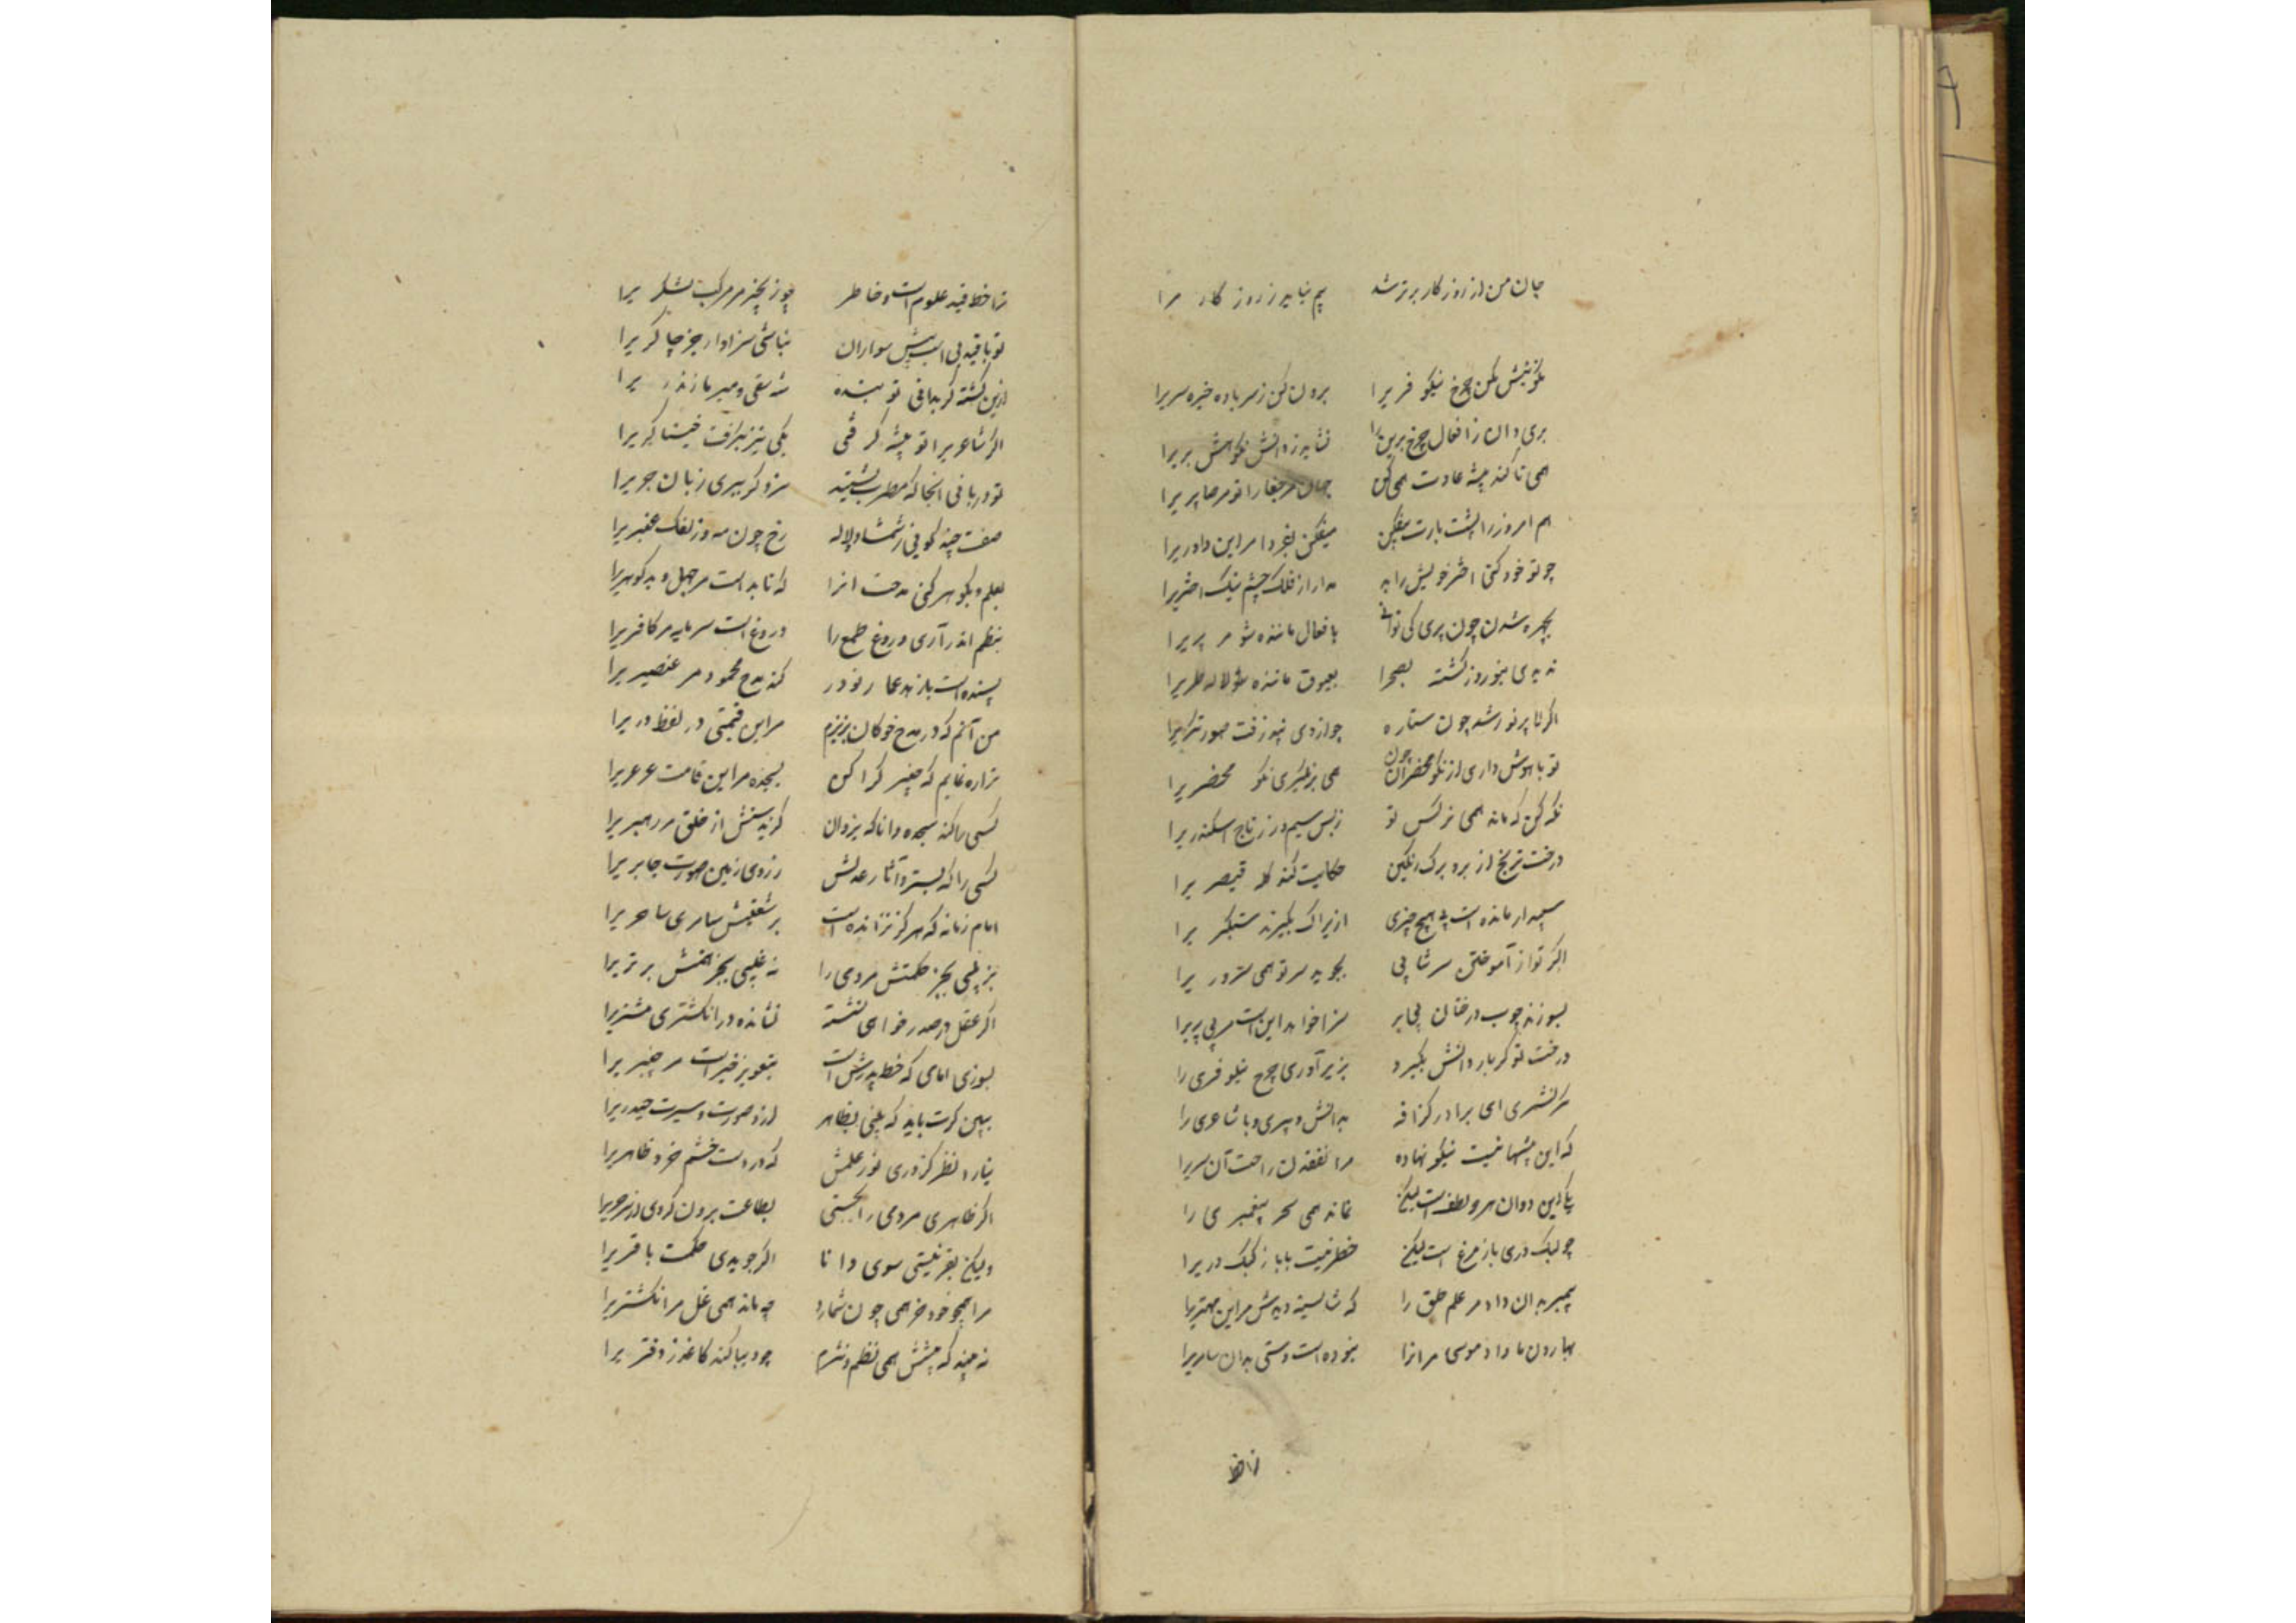 جان من از روزگار برتر شد بیم نیاید ز روزگار مرا
نکوهش مکن چرخ نیلوفریرا برون کن ز سر باد خیره سریرا
بری دان ز افعال چرخ برین را نشاید ز دانش نکوهش بریرا
همی تا کند پیشه عادت همی کن جهان مر جفا را تو مر صابریرا
هم امروز از پشت بارت بیفکن میفکن بفردا مر این داوریرا
چو تو خود کنی اختر خویش را بد مدار از فلک چشم نیک اختریرا
بچهره شدن چون پری کی توانی بافعال ماننده شو مر پریرا
ندیدی بنوروز گشته بصحرا بعیوق ماننده لاله طریرا
اگر لاله پر نور شد چون ستاره چو از وی نپذرفت صورتگریرا
تو با هوش و رای از نکو محضران چون همی برنگیری نکو محضریرا
نگه کن که ماند همی نرگس تو ز بس سیم و زر تاج اسکندریرا
درخت ترنج از بر و برگ رنگین حکایت کند کله قیصریرا
سپیدار مانده است بی هیچ چیزی ازیراک بگزید مستکبریرا
اگر تو از آموختن سر بتابی بجوید سر تو همی سروریرا
بسوزند چوب درختان بی بر سزا خود همین است مر بی بریرا
درخت تو گر بار دانش بگیرد بزیر آوری چرخ نیلوفری را
نگر نشمری ای برادر گزافه بدانش دبیری و یا شاعری را
که این پیشها نیست نیکو نهاده مر الفغدن راحت آن سریرا
بلی این و آن هر دو نطق است لیکن نماند همی سحر پیغمبری را
چو کبک دری باز مرغ است لیکن خطر نیست با باز کبک دریرا
پیمبر بدان داد مر علم حق را که شایسته دیدش مر این مهتریرا
بهارون ما داد موسی مر انرا نبوده است دستی بدان سامریرا
ترا خط
ترا خط قید علوم است و خاطر چو زنجیر مر مرکب لشکریرا
تو با قید بی اسب پیش سواران نباشی سزاوار جز چاکریرا
ازین گشته گر بدانی تو بنده شه شغنی و میر مازندریرا
اگر شاعریرا تو پیشه گرفتی یکی نیز بگرفت خنیاگریرا
تو درمانی انجا که مطرب نشیند سزد گر ببری زبان جریرا
صفت چند گوئی ز شمشاد و لاله رخ چون مه و زلفک عنبریرا
بعلم و بگوهر کنی مدحت انرا که مایه است مر جهل و بدگوهریرا
بنظم اندر آری دروغ و طمع را دروغ است سرمایه مر کافریرا
پسنده است با زهد عمار و بوذر کند مدح محمود مر عنصریرا
من آنم که در مدح خوکان نریزم مر این قیمتی در لفظ دریرا
ترا ره نمایم که چنبر کرا کن بسجده مر این قامت عرعریرا
کسی را کند سجده دانا که یزدان گزیدستش از خلق مر رهبریرا
کسی را که بسترد آثار عدلش ز روی زمین صورت جابریرا
امام زمانه که هرگز نرانده است بر شیعتش سامری ساحریرا
نه ریگی بجز حکمتش مردمی را نه عیبی بجز همتش برتریرا
اگر عقل در صدر خواهی نشسته نشانده در انگشتری مشتریرا
بسوی امامی که خط پدرش است بتعویذ خیرات مر خیبریرا
ببین گرت باید که بینی بظاهر ازو صورت و سیرت حیدریرا
نیارد نظر کرد زی نور علمش که در دست چشم خرد ظاهریرا
اگر ظاهری مردمی را بجستی بطاعت برون کردی از سر خریرا
ولیکن بقر نیستی سوی دانا اگر جویدی حکمت باقریرا
مرا همچو خود خر همی چون شمارد چه ماند همی غل مر انگشتریرا
نبیند که پیشش همی نظم و نثرم چو دیبا کند کاغذ دفتریرا